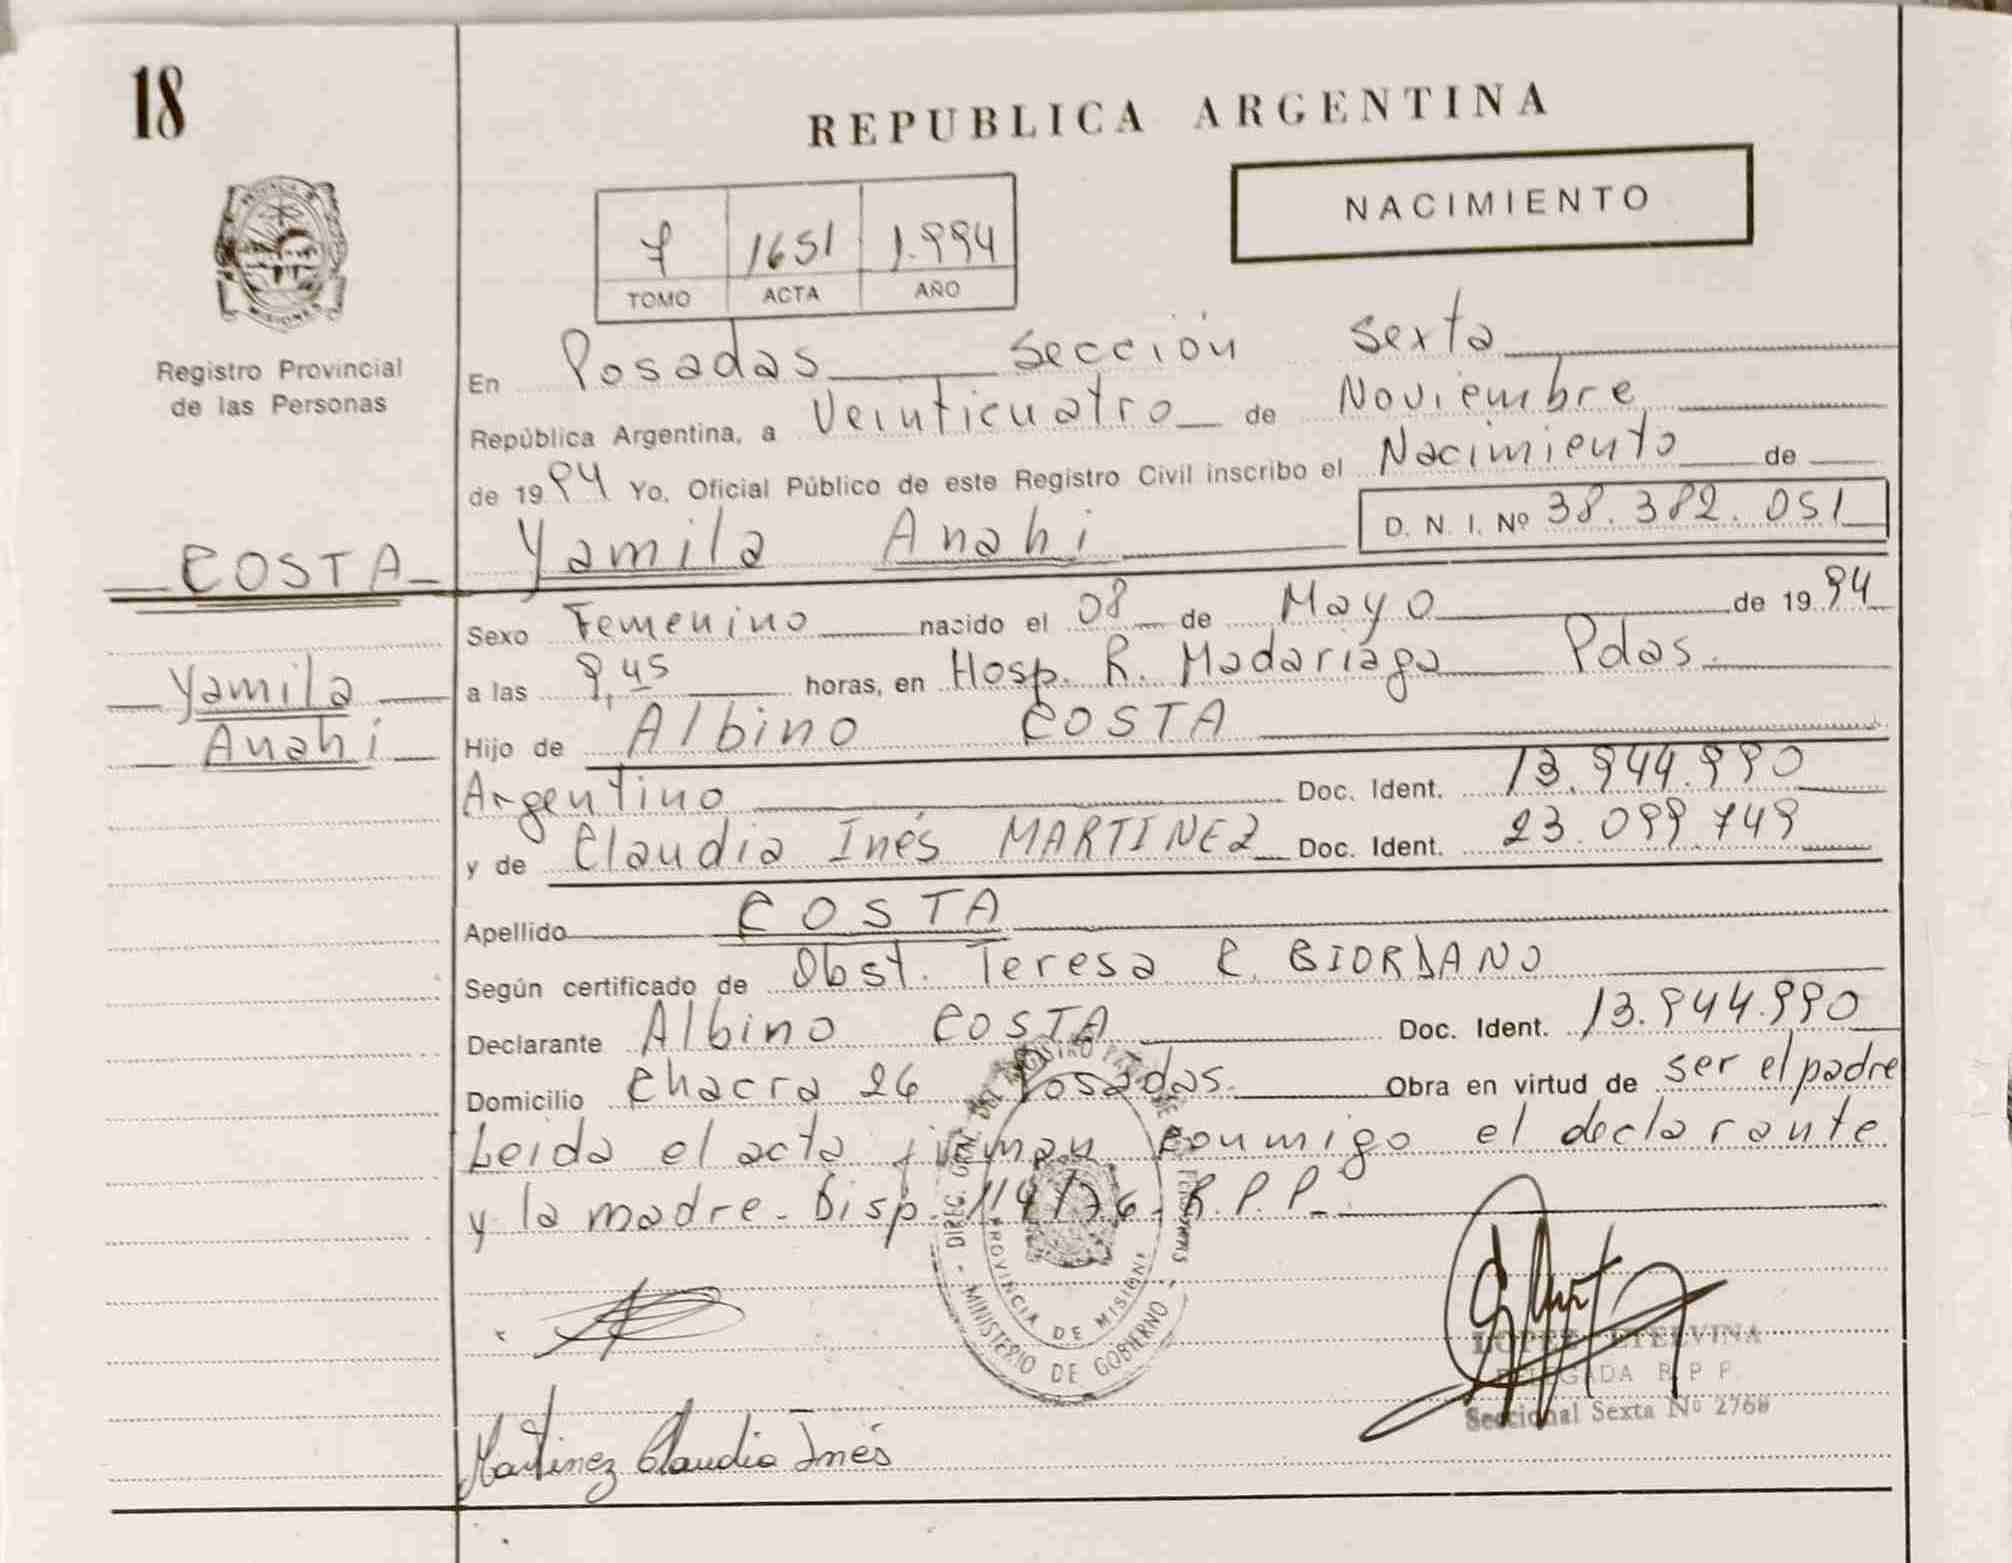 18
REPUBLICA ARGENTINA
NACIMIENTO
7 1651 1.994
TOMO ACTA AÑO
MISIONES
Registro Provincial
de las Personas
En Posadas Sección Sexta
República Argentina, a Veinticuatro de Noviembre
de 1994 Yo, Oficial Público de este Registro Civil inscribo el Nacimiento de
D. N. I. Nº 38.382.051
COSTA Yamila Anahi
Sexo Femenino nacido el 08 de Mayo de 1994
Yamila
Anahi
a las 9,45 horas, en Hosp. R. Madariaga Pdas.
Hijo de Albino COSTA
Argentino Doc. Ident. 13.944.990
y de Claudia Inés MARTINEZ Doc. Ident. 23.099.749
Apellido COSTA
Según certificado de Obst. Teresa C. GIORDANO
Declarante Albino COSTA Doc. Ident. 13.944.990
Domicilio Chacra 26 Posadas. Obra en virtud de ser el padre
Leida el acta firman conmigo el declarante
y la madre. Disp. 114/76. R.P.P.
MINISTERIO DE GOBIERNO
PROVINCIA DE MISIONES
LOPEZ ETELVINA
DELEGADA R P P
Seccional Sexta Nº 2768
Martinez Claudia Inés